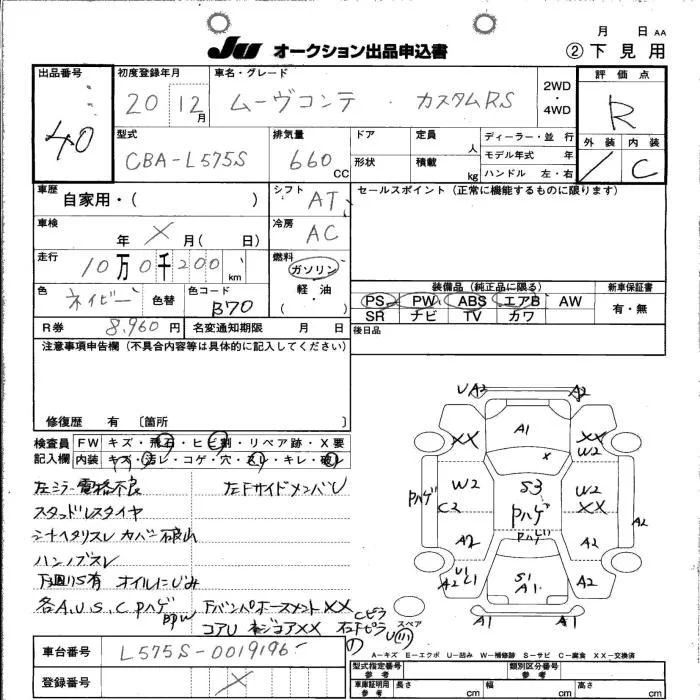 月 日 AA
JU オークション出品申込書
② 下見用
出品番号
40
初度登録年月
20 12月
車名・グレード
ムーヴコンテ・カスタムRS
2WD・4WD
評価点
R
型式
CBA-L575S
排気量
660 CC
ドア
形状
定員 人
積載 kg
ディーラー・並行
モデル年式 年
ハンドル 左・右
外装 内装
/ C
車歴
自家用・( )
シフト
AT
セールスポイント(正常に機能するものに限ります)
車検
年 X 月( 日)
冷房
AC
走行
10万0千200 km
燃料
ガソリン
軽・油
( )
色
ネイビー
色替
色コード
B70
装備品(純正品に限る)
PS PW ABS エアB AW
SR ナビ TV カワ
新車保証書
有・無
R券
8,960円
名変通知期限 月 日
後日品
注意事項申告欄(不具合内容等は具体的に記入してください)
修復歴 有 〔箇所 〕
検査員記入欄
FW キズ・飛石・ヒビ割・リペア跡・X要
内装 キズ・汚レ・コゲ・穴・スレ・キレ・破レ
左ミラー電格不良
左Fサイドメンバ U
スタッドレスタイヤ
シートヘタリスレ カバー破れ
ハンノブスレ
下廻りS有 オイルにじみ
各A.U.S.C.Pハゲ
コアU
UA2 A2
XX A1 XX
W2
X
W2 S3 W2
Pハゲ C2 Pハゲ XX
A2
Pハゲ
A2 A2
U1
A2 C1 S1 A1 A2
スペア
A1 A1
A-キズ E-エクボ U-凹み W-補修跡 S-サビ C-腐食 XX-交換済
車台番号
L575S-0019196
型式指定番号 参考
類別区分番号 参考
登録番号
X
車庫証明用 参考
長さ cm 幅 cm 高さ cm